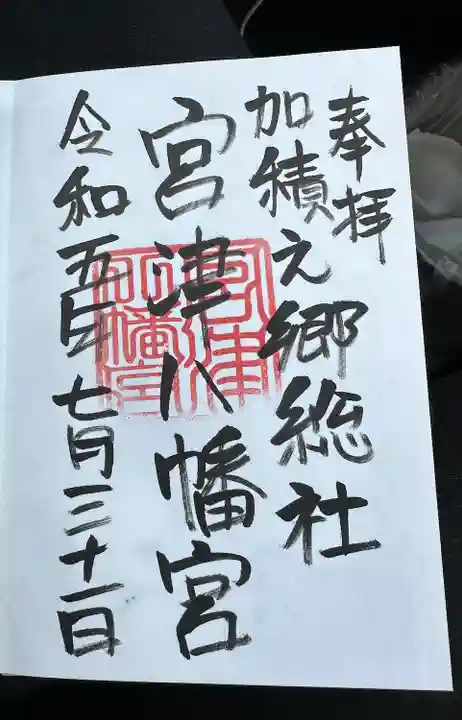 奉拝
加積之郷総社
宮津八幡宮
宮津八幡宮
令和五年七月三十一日